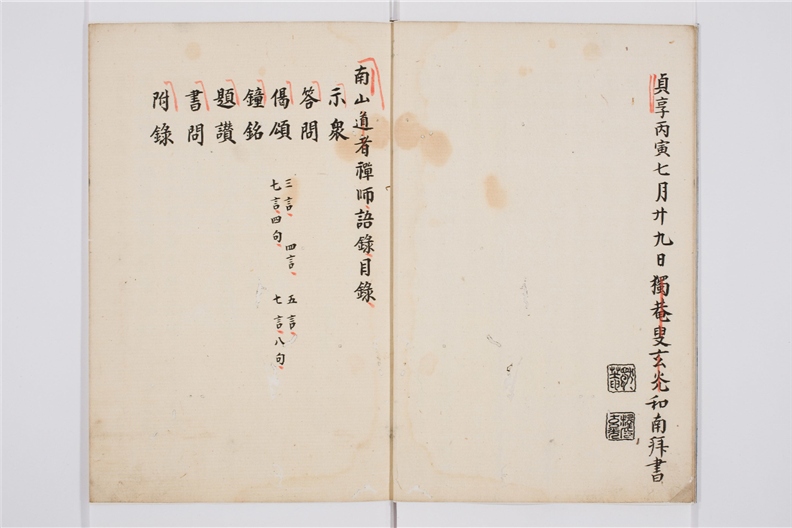 貞享丙寅七月廿九日獨菴叟玄光和南拜書
南山道者禪師語錄目錄
示衆
答問
偈頌
三言 四言 五言
七言四句 七言八句
鐘銘
題讚
書問
附錄